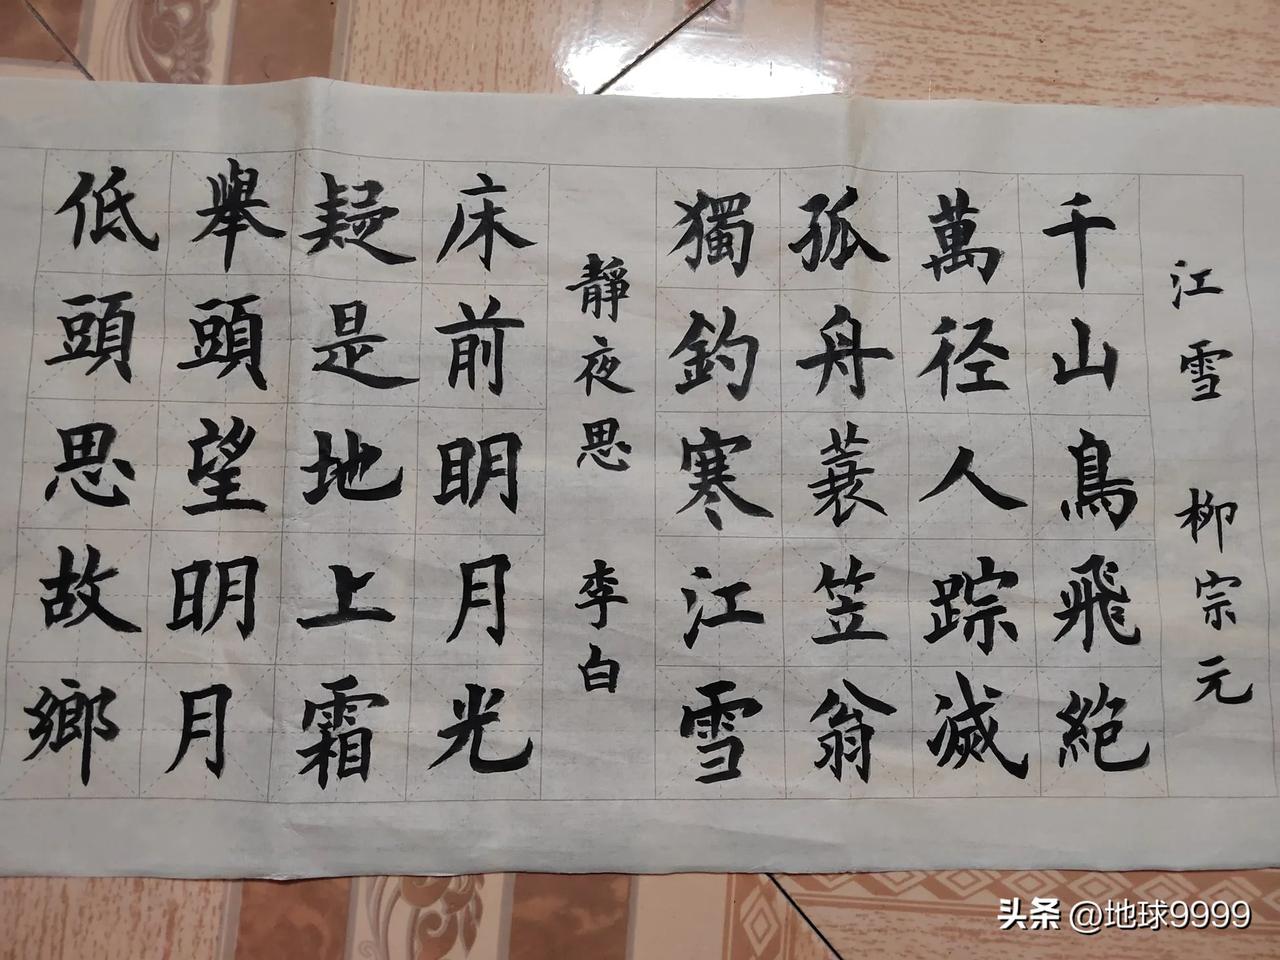 江雪 柳宗元
千山鳥飛絕
萬径人踪滅
孤舟蓑笠翁
獨釣寒江雪
靜夜思 李白
床前明月光
疑是地上霜
舉頭望明月
低頭思故鄉
头条 @地球9999